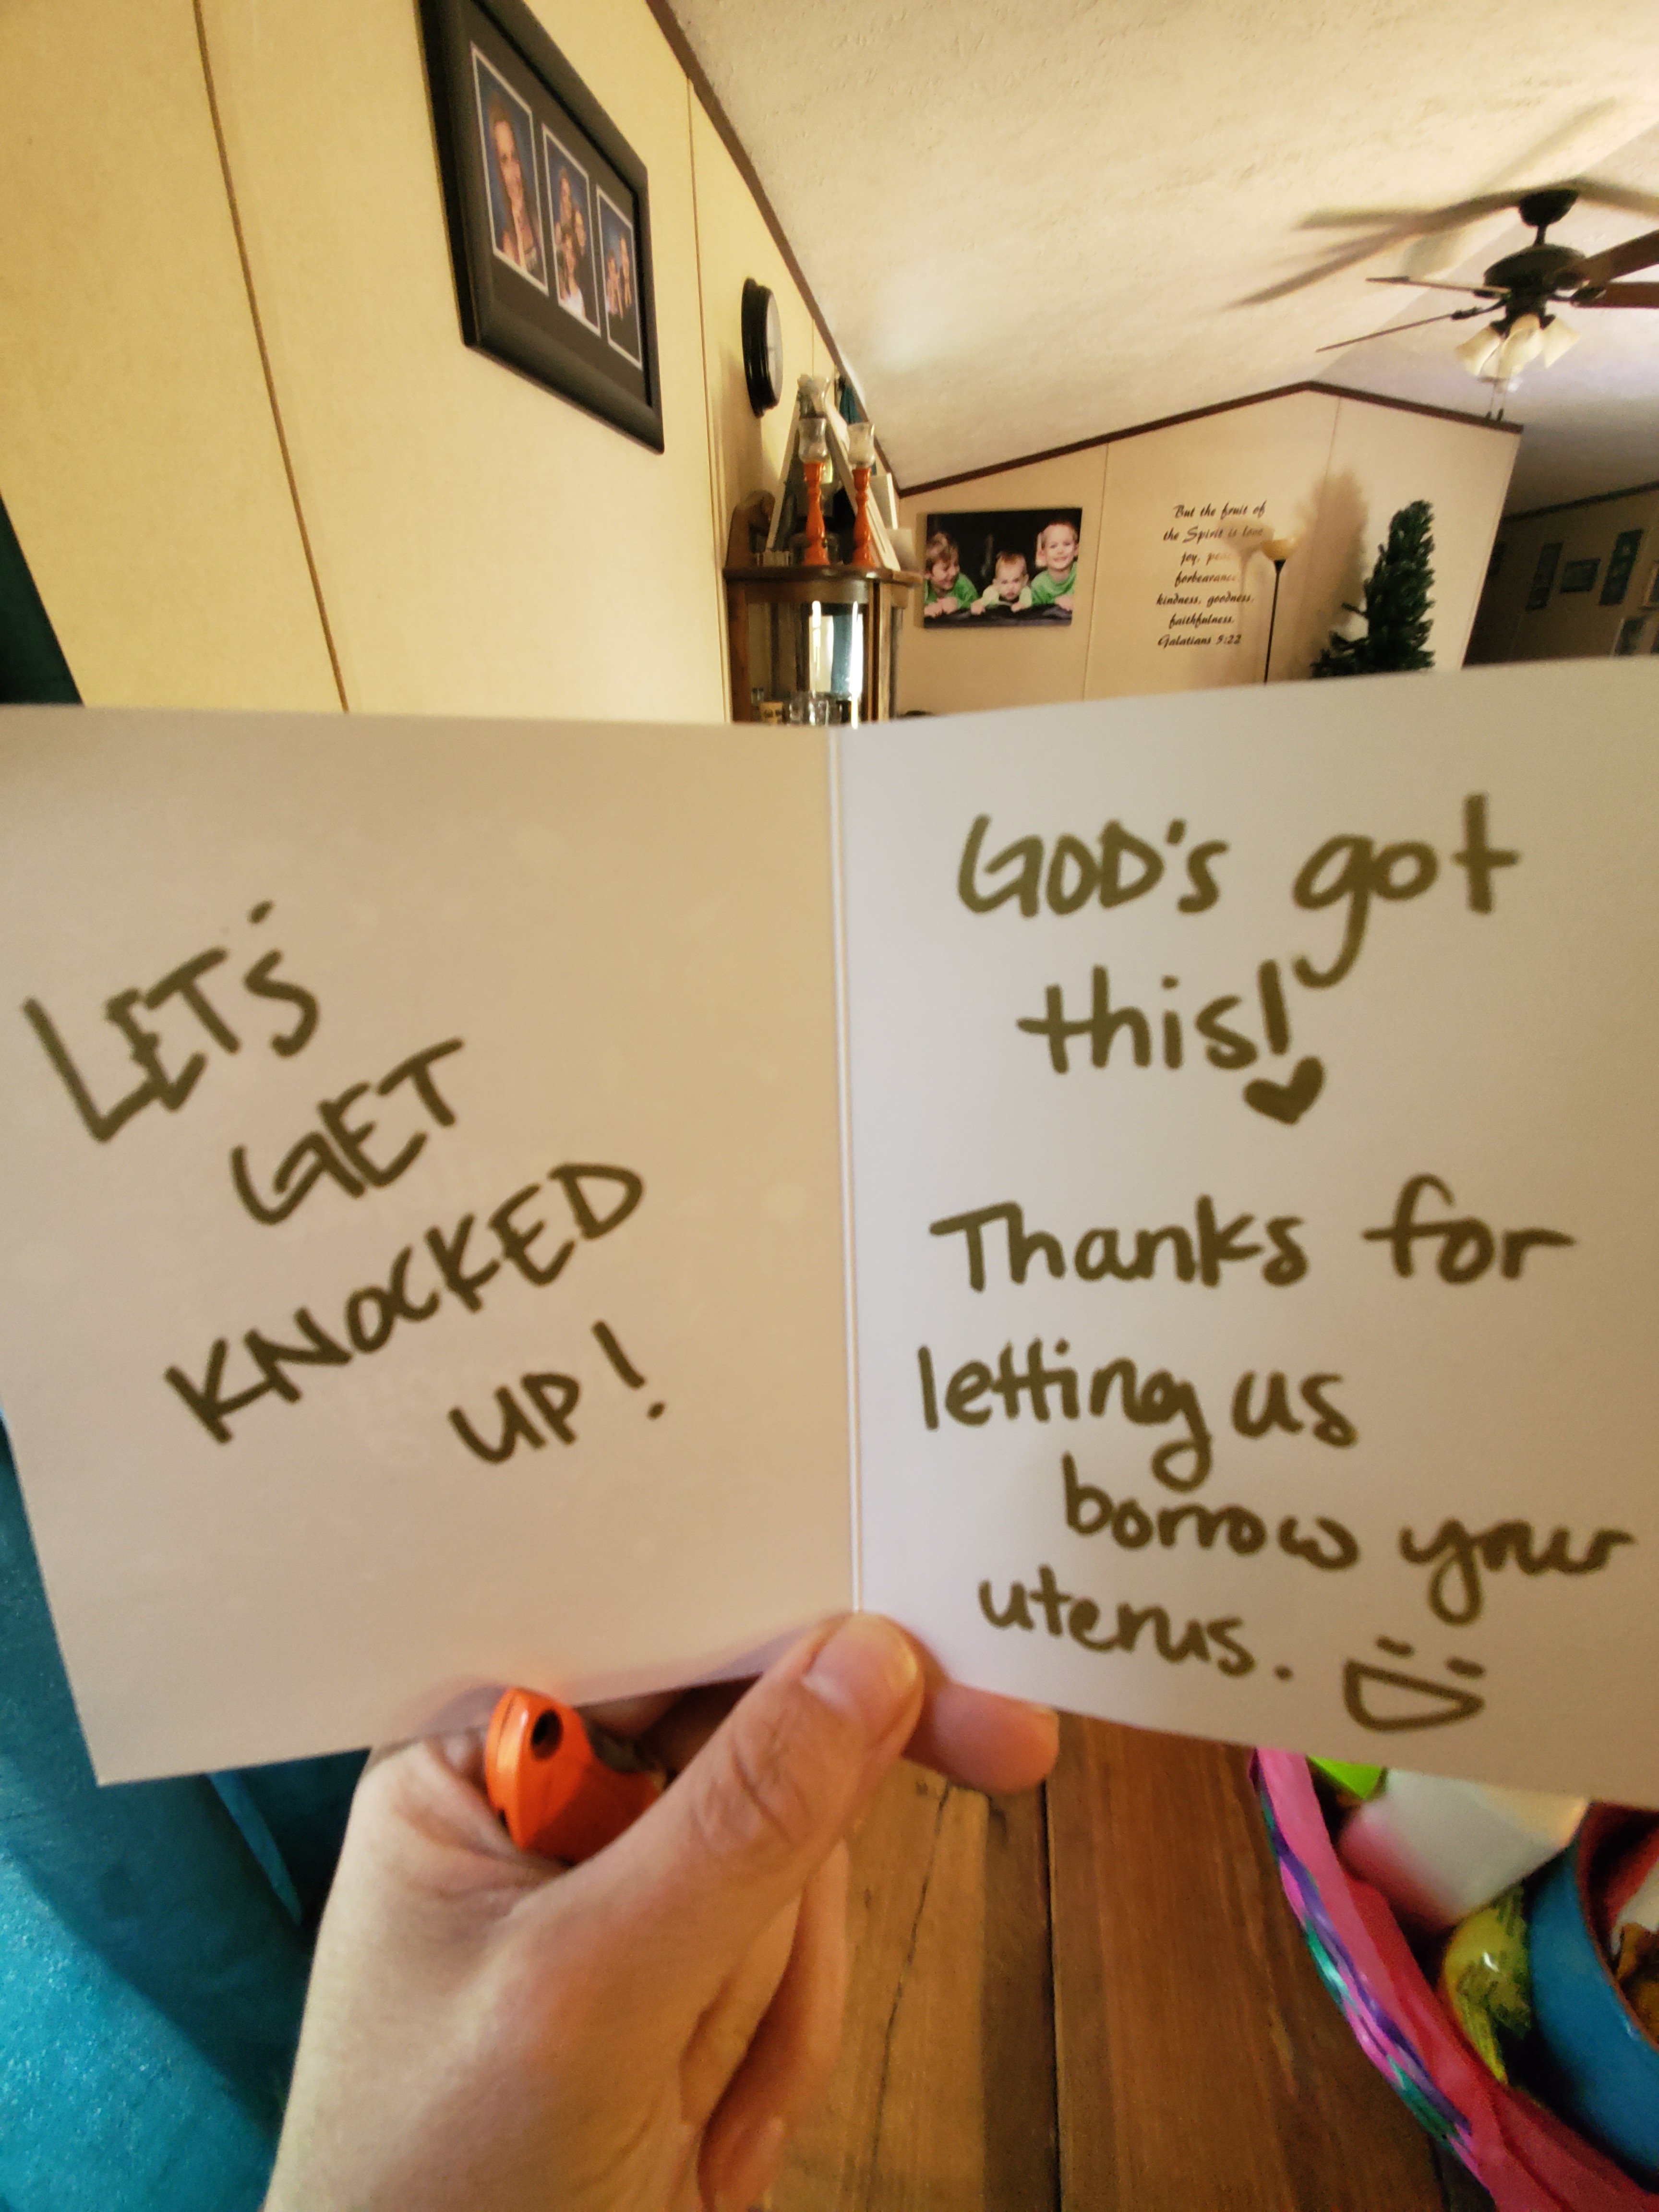 But the fruit of
the Spirit is love
joy,
forbearance
kindness, goodness,
faithfulness.
Galatians 5:22
LET'S
GET
KNOCKED
UP!
GOD'S got
this!
Thanks for
letting us
borrow your
uterus.